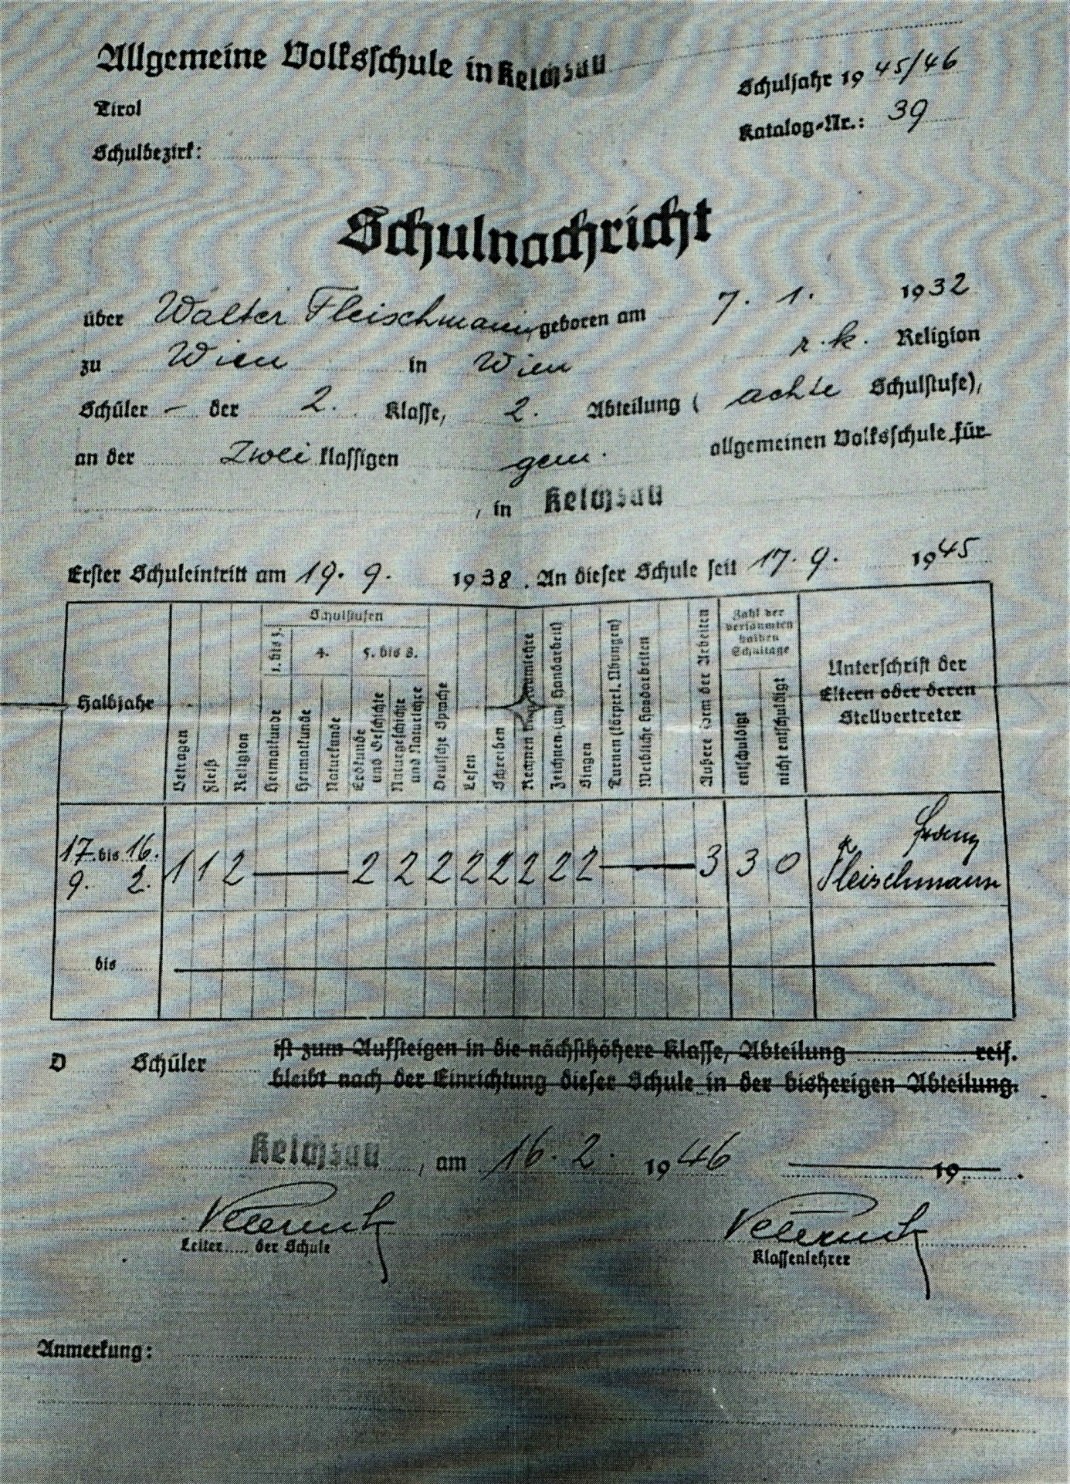 Allgemeine Volksschule in Kelchsau
Schuljahr 1945/46
Tirol
Katalog-Nr.: 39
Schulbezirk:
Schulnachricht
über Walter Fleischmann, geboren am 7. 1. 1932
zu Wien in Wien r. k. Religion
Schüler – der 2. Klasse, 2. Abteilung (achte Schulstufe),
an der Zwei klassigen gem. allgemeinen Volksschule für
, in Kelchsau
Erster Schuleintritt am 19. 9. 1938. An dieser Schule seit 17. 9. 1945
Halbjahre
Betragen
Fleiß
Religion
Schulstufen
1. bis 3.
4.
5. bis 8.
Heimatkunde
Heimatkunde
Naturkunde
Erdkunde und Geschichte
Naturgeschichte und Naturlehre
Deutsche Sprache
Lesen
Schreiben
Rechnen
Zeichnen (und Handarbeit)
Singen
Turnen (körperl. Übungen)
Weibliche Handarbeiten
Äußere Form der Arbeiten
Zahl der versäumten halben Schultage
entschuldigt
nicht entschuldigt
Unterschrift der Eltern oder deren Stellvertreter
17. bis 16. 1 1 2 — 2 2 2 2 2 2 2 2 — 3 3 0 Franz
9. 2. Fleischmann
bis
D Schüler ist zum Aufsteigen in die nächsthöhere Klasse, Abteilung reif.
bleibt nach der Einrichtung dieser Schule in der bisherigen Abteilung.
Kelchsau, am 16. 2. 1946 19 .
Leiter..... der Schule
Klassenlehrer
Anmerkung: